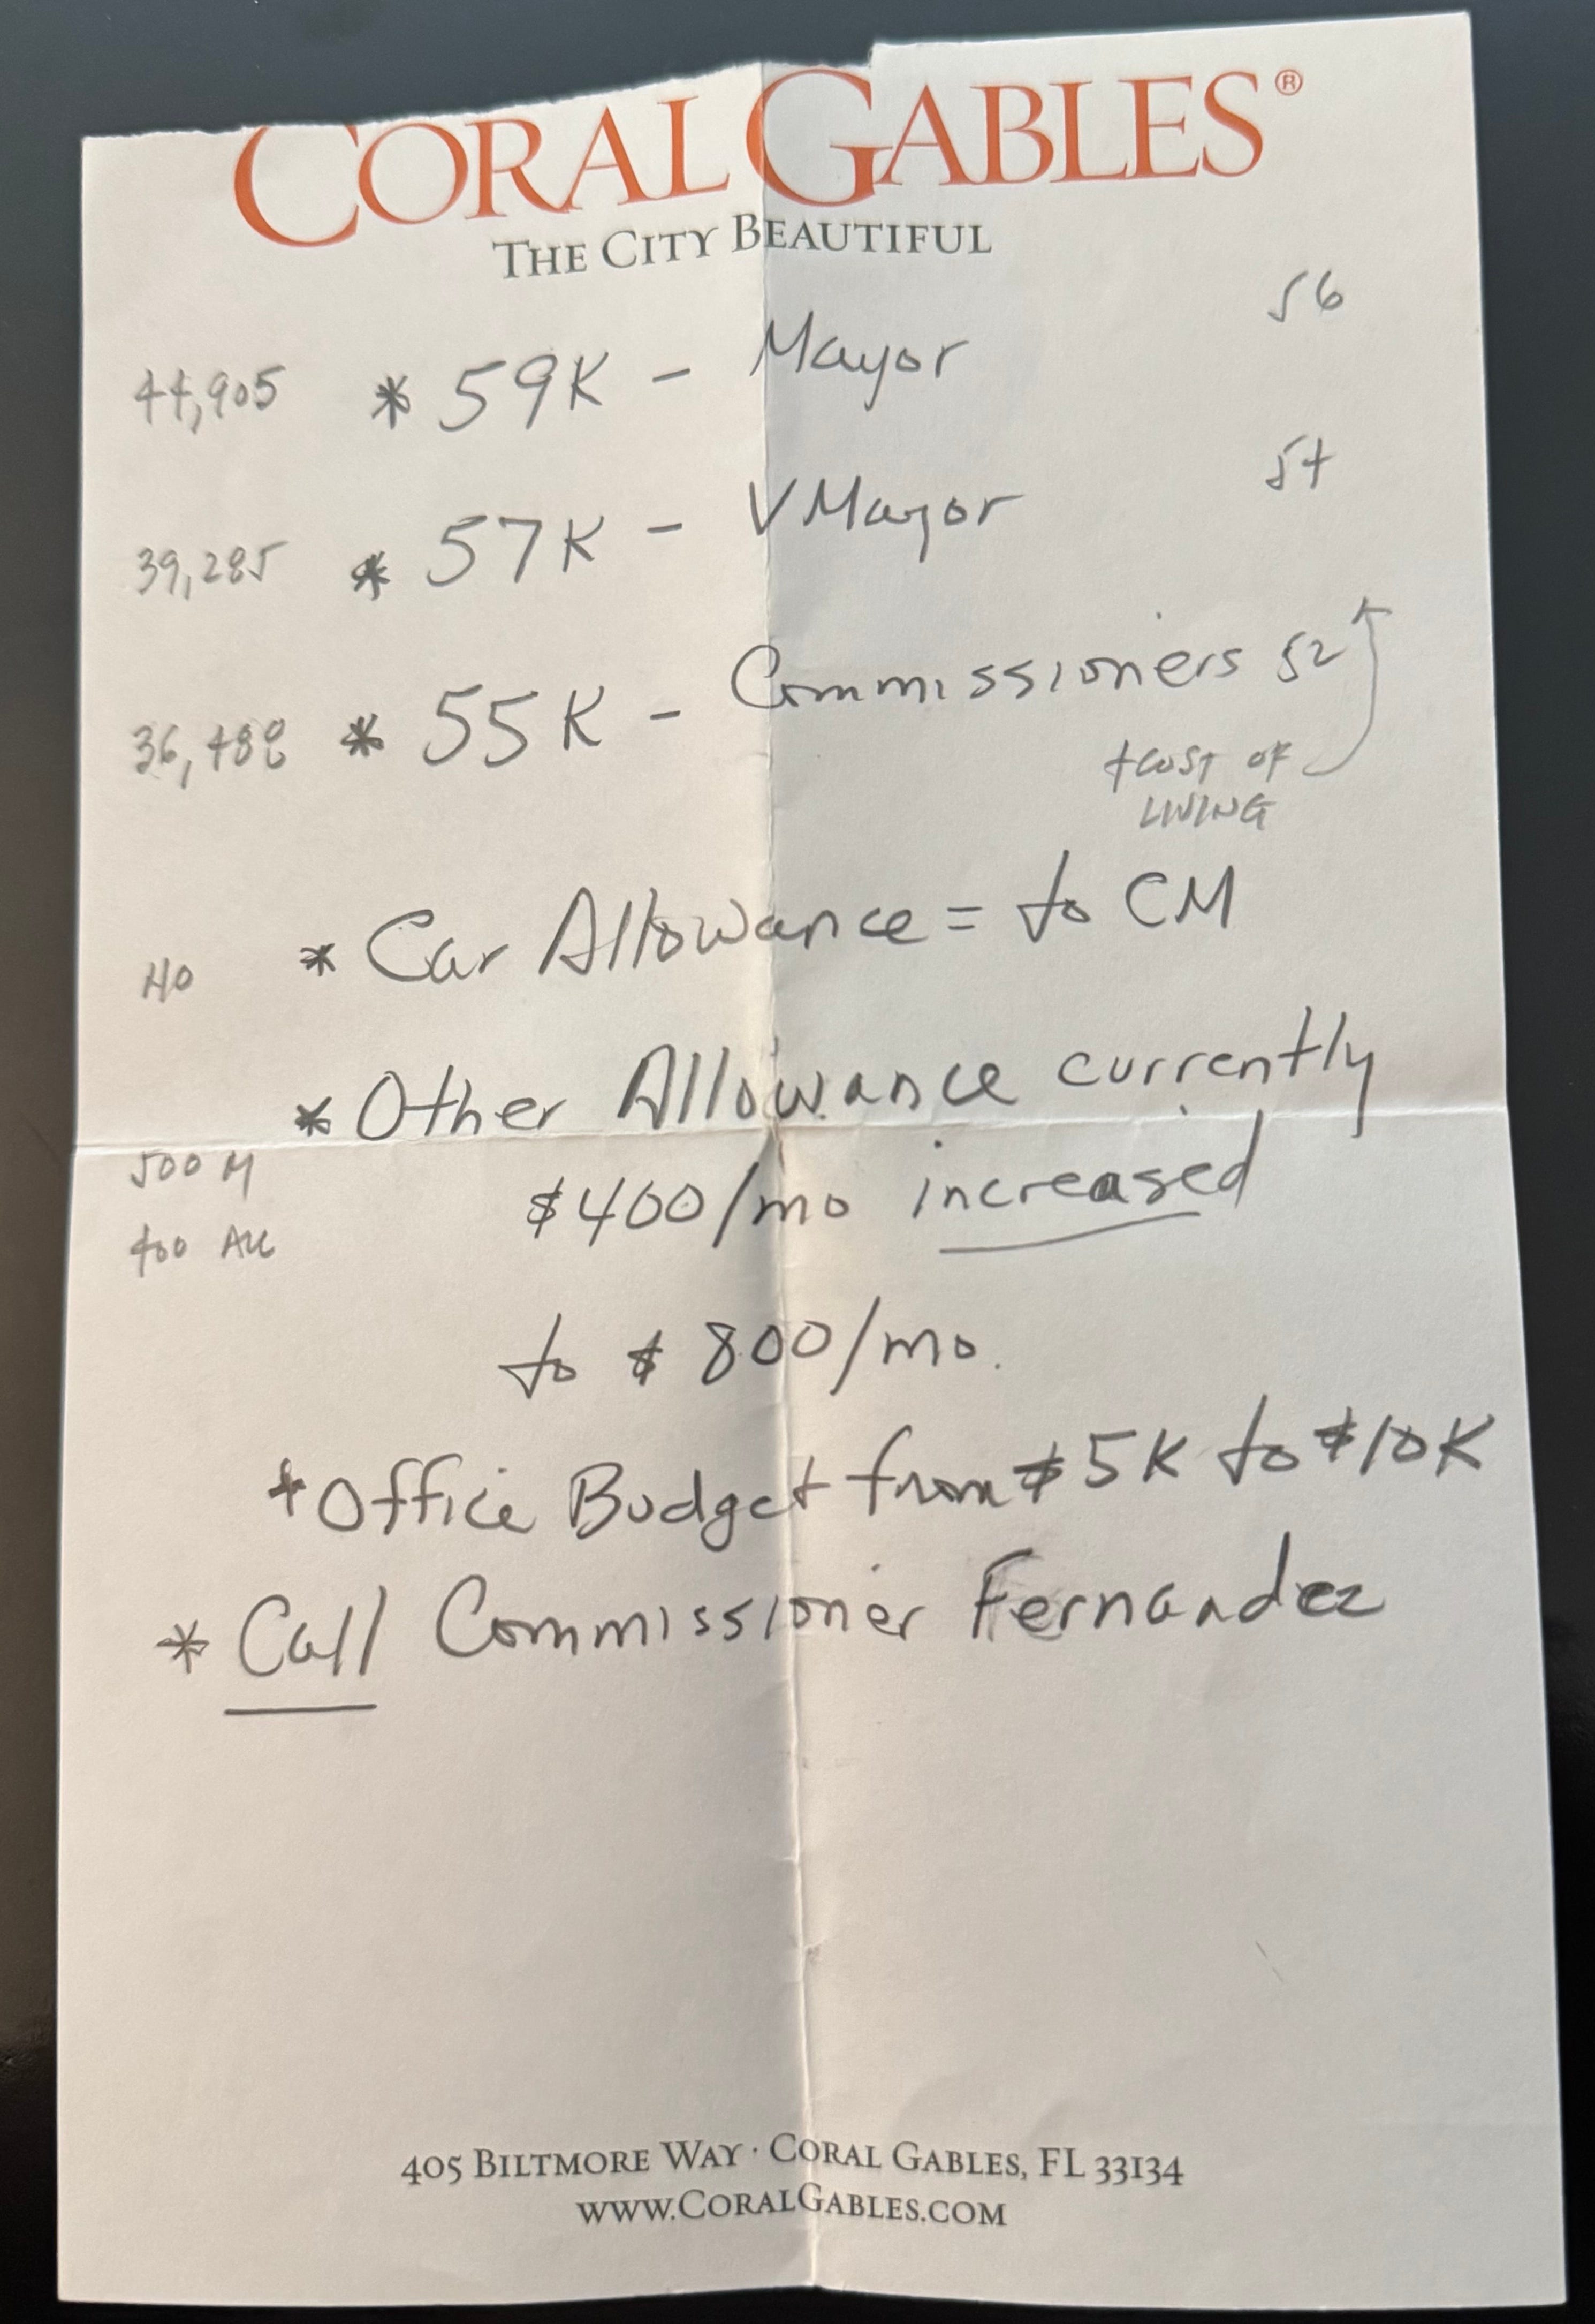 CORAL GABLES®
THE CITY BEAUTIFUL
56
44,905 * 59K - Mayor
54
39,285 * 57K - VMayor
36,488 * 55K - Commissioners 52
+COST OF
LIVING
NO * Car Allowance = to CM
* Other Allowance currently
500 M $400/mo increased
400 ALL
to $800/mo.
* Office Budget from $5K to $10K
* Call Commissioner Fernandez
405 BILTMORE WAY · CORAL GABLES, FL 33134
WWW.CORALGABLES.COM